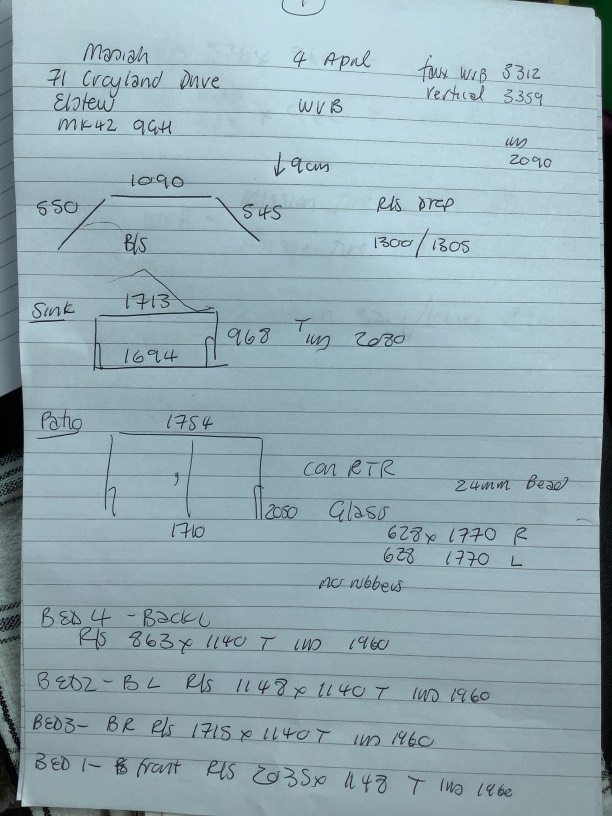 1
Mariah 4 Apal faux WVB 3312
71 Crayland Drive vertical 3359
Elstew WVB
MK42 9GH
um 2090
↓9cm
1090
550 545 R/s Drop
B/S 1300/1305
Sink 1713
968 T um 2080
1694
Patio 1754
can RTR 24mm Bead
2050 Glass
1710 628 x 1770 R
628 1770 L
no rubbers
BED 4 - Back L
R/s 863 x 1140 T um 1960
BED2 - BL R/s 1148 x 1140 T um 1960
BED3 - BR R/s 1715 x 1140 T um 1960
BED 1 - front R/s 2035 x 1148 T um 1960